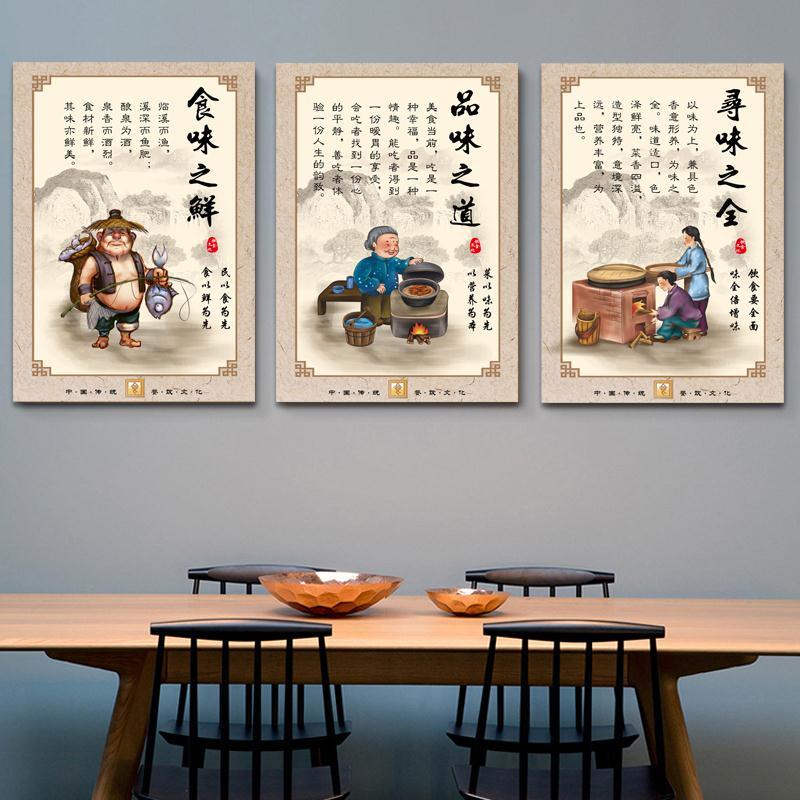 食味之鮮
临溪而渔，
溪深而鱼肥；
酿泉为酒，
泉香而酒烈。
食材新鲜，
其味亦鲜美。
民以食为先
食以鲜为先
中·国·传·统 餐·饮·文·化
品味之道
美食当前，吃是一
种幸福，品是一种
情趣。能吃者得到
一份暖胃的享受，
会吃者找到一份心
的平静，善吃者体
验一份人生的韵致。
菜以味为先
以营养为本
中·国·传·统 餐·饮·文·化
尋味之全
以味为上，兼具色
香意形养，为味之
全。味道适口，色
泽鲜亮，菜香四溢，
造型独特，意境深
远，营养丰富，为
上品也。
饮食要全面
味全倍增味
中·国·传·统 餐·饮·文·化